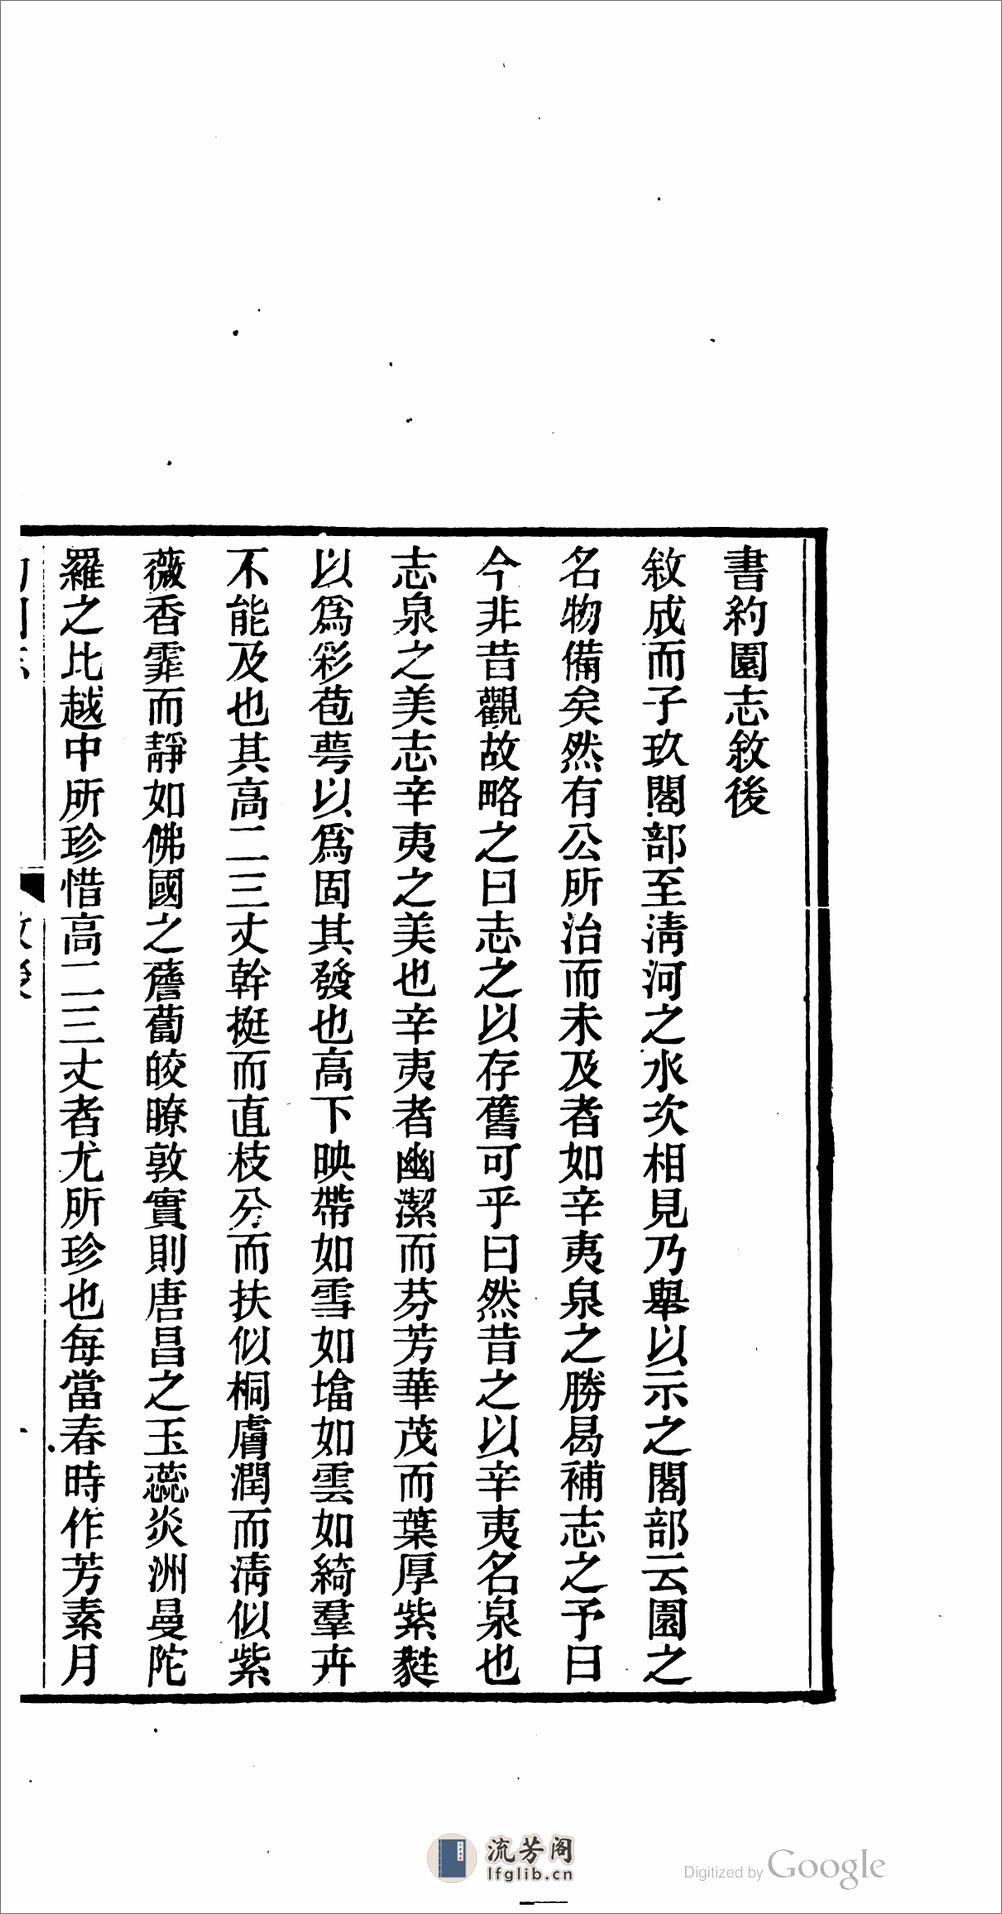 書約園志敘後
敘成而子玖閣部至淸河之水次相見乃舉以示之閣部云園之
名物備矣然有公所治而未及者如辛夷泉之勝曷補志之予曰
今非昔觀故略之曰志之以存舊可乎曰然昔之以辛夷名泉也
志泉之美志辛夷之美也辛夷者幽潔而芬芳華茂而葉厚紫蕤
以爲彩苞萼以爲固其發也高下映帶如雪如壒如雲如綺羣卉
不能及也其高二三丈幹挺而直枝分而扶似桐膚潤而淸似紫
薇香霏而靜如佛國之薝蔔皎暸敦實則唐昌之玉蕊炎洲曼陀
羅之比越中所珍惜高二三丈者尤所珍也每當春時作芳素月
敘後
流芳阁
lfglib.cn
Digitized by Google